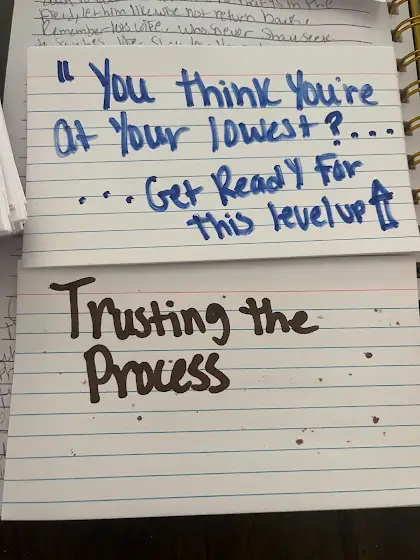 field, let him likewise not return back.
Remember lot's wife. Whosoever shall seek
" You think You're
at Your lowest?...
...Get Ready For
this level up ⇧
Trusting the
Process